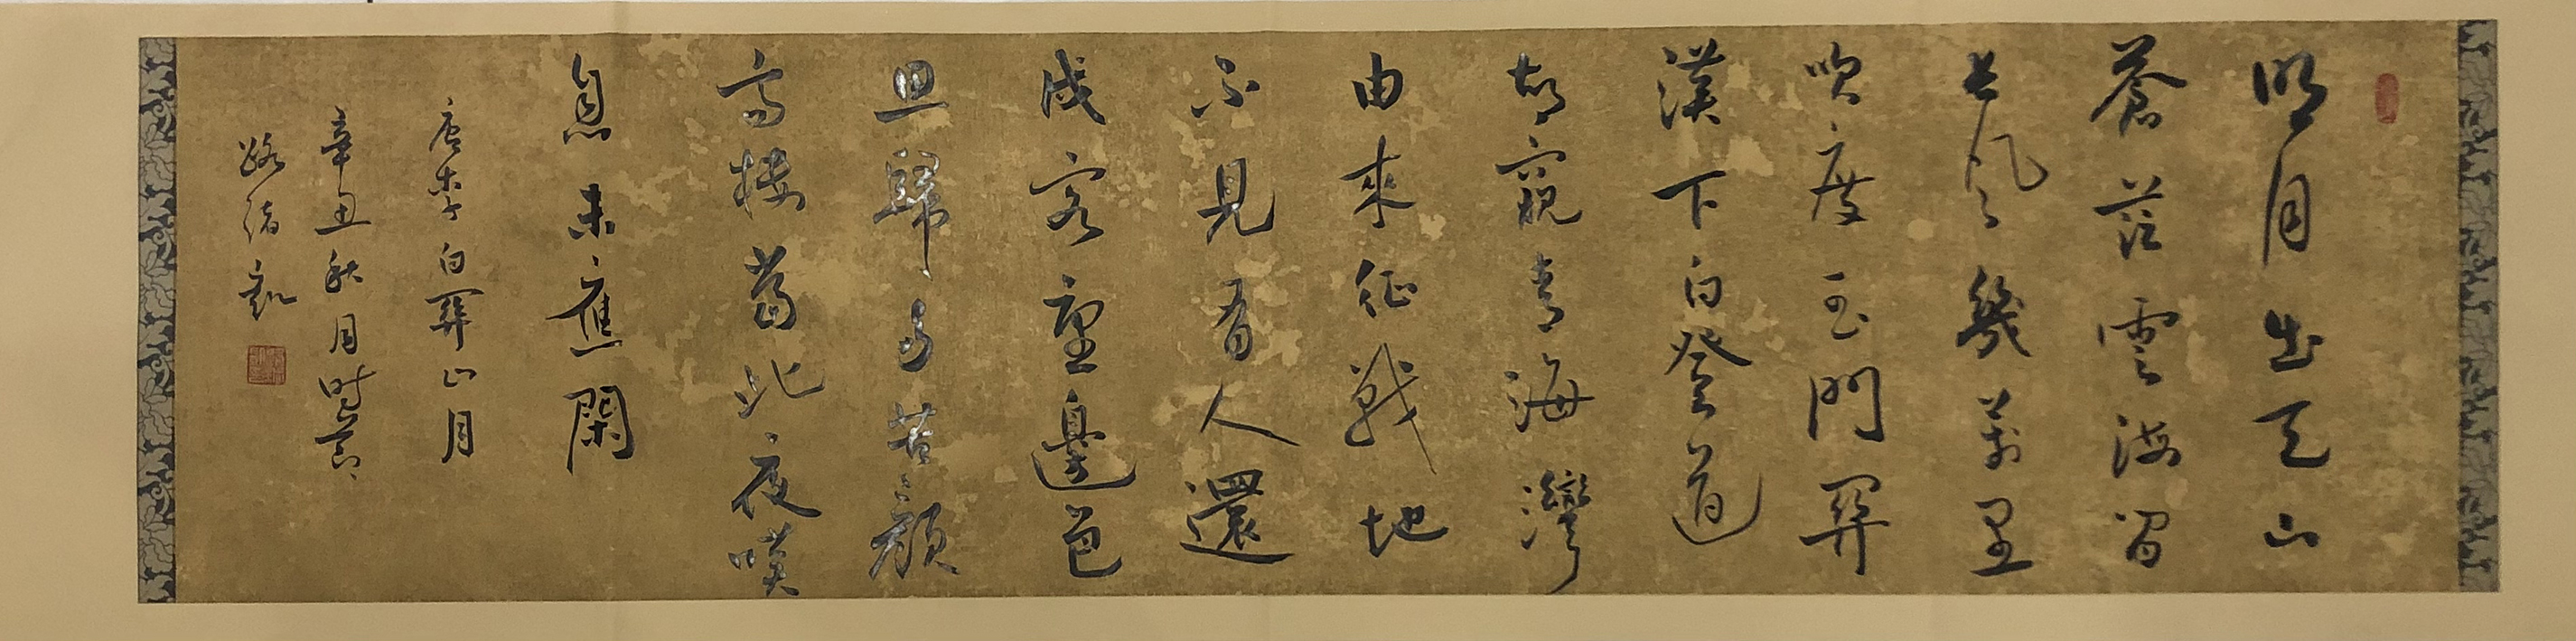 明月出天山
蒼茫雲海間
長風幾萬里
吹度玉門關
漢下白登道
胡窺青海灣
由來征戰地
不見有人還
戍客望邊邑
思歸多苦顏
高樓當此夜嘆
息未應閑
唐李白關山月
辛丑秋月時節
路